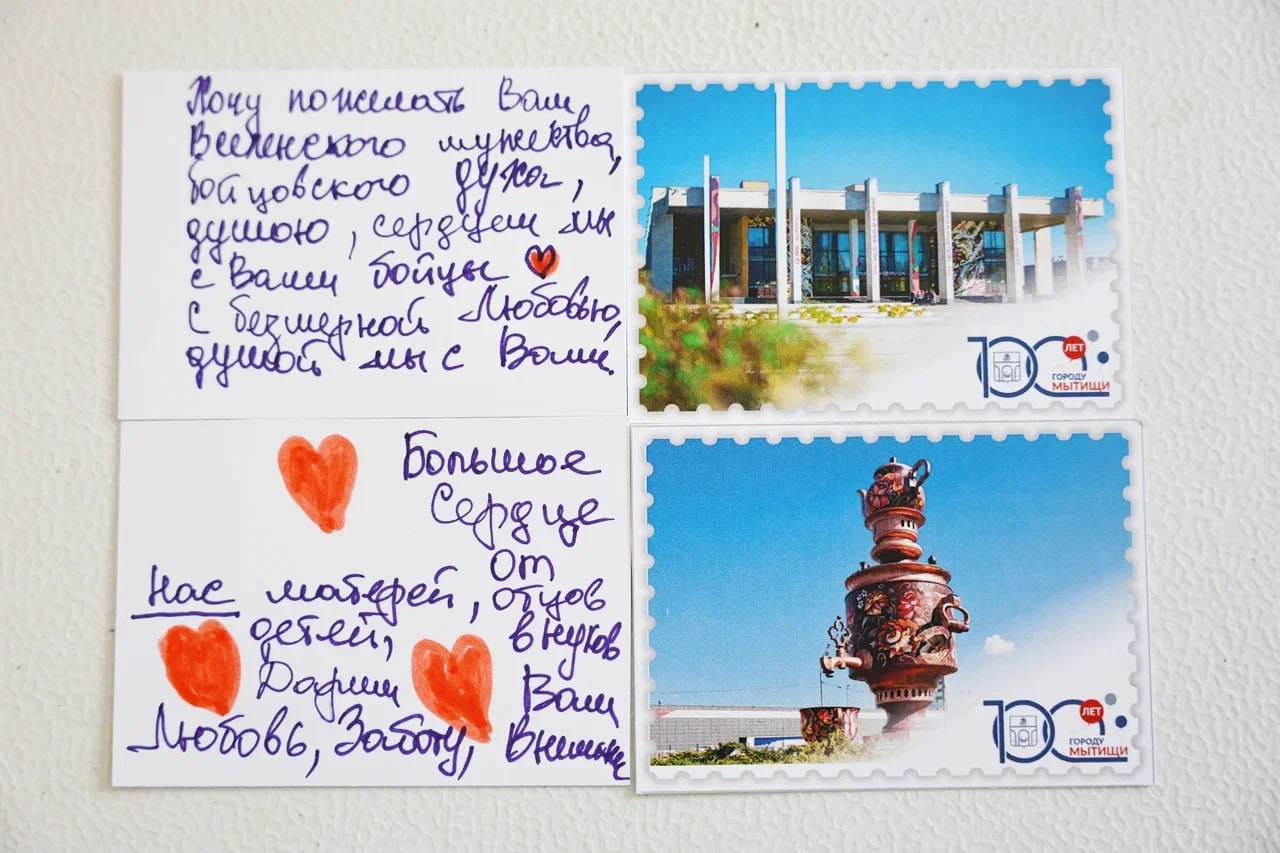 Хочу пожелать Вам,
Вселенского мужества,
бойцовского духа,
душою, сердцем мы
с Вами бойцы
с безмерной Любовью,
душой мы с Вами.
100 ЛЕТ
ГОРОДУ
МЫТИЩИ
Большое
Сердце
от
Нас матерей, отцов
детей, внуков
Дарим Вам
Любовь, Заботу,
100 ЛЕТ
ГОРОДУ
МЫТИЩИ